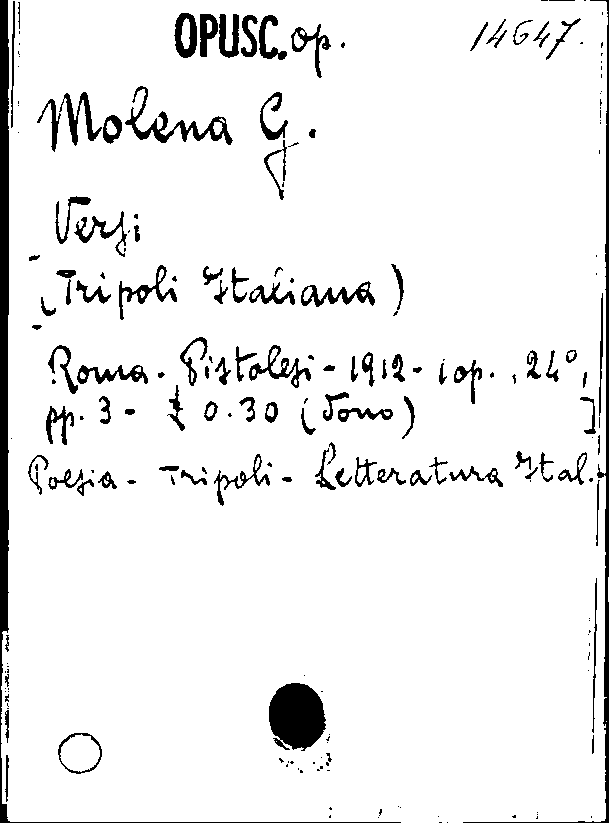 OPUSC. op. 14647.
Molena G.
Versi
(Tripoli Italiana)
Roma - Pistolesi - 1912 - 1 op., 24°,
pp. 3 - £ 0.30 (Dono) ]
Poesia - Tripoli - Letteratura Ital. -